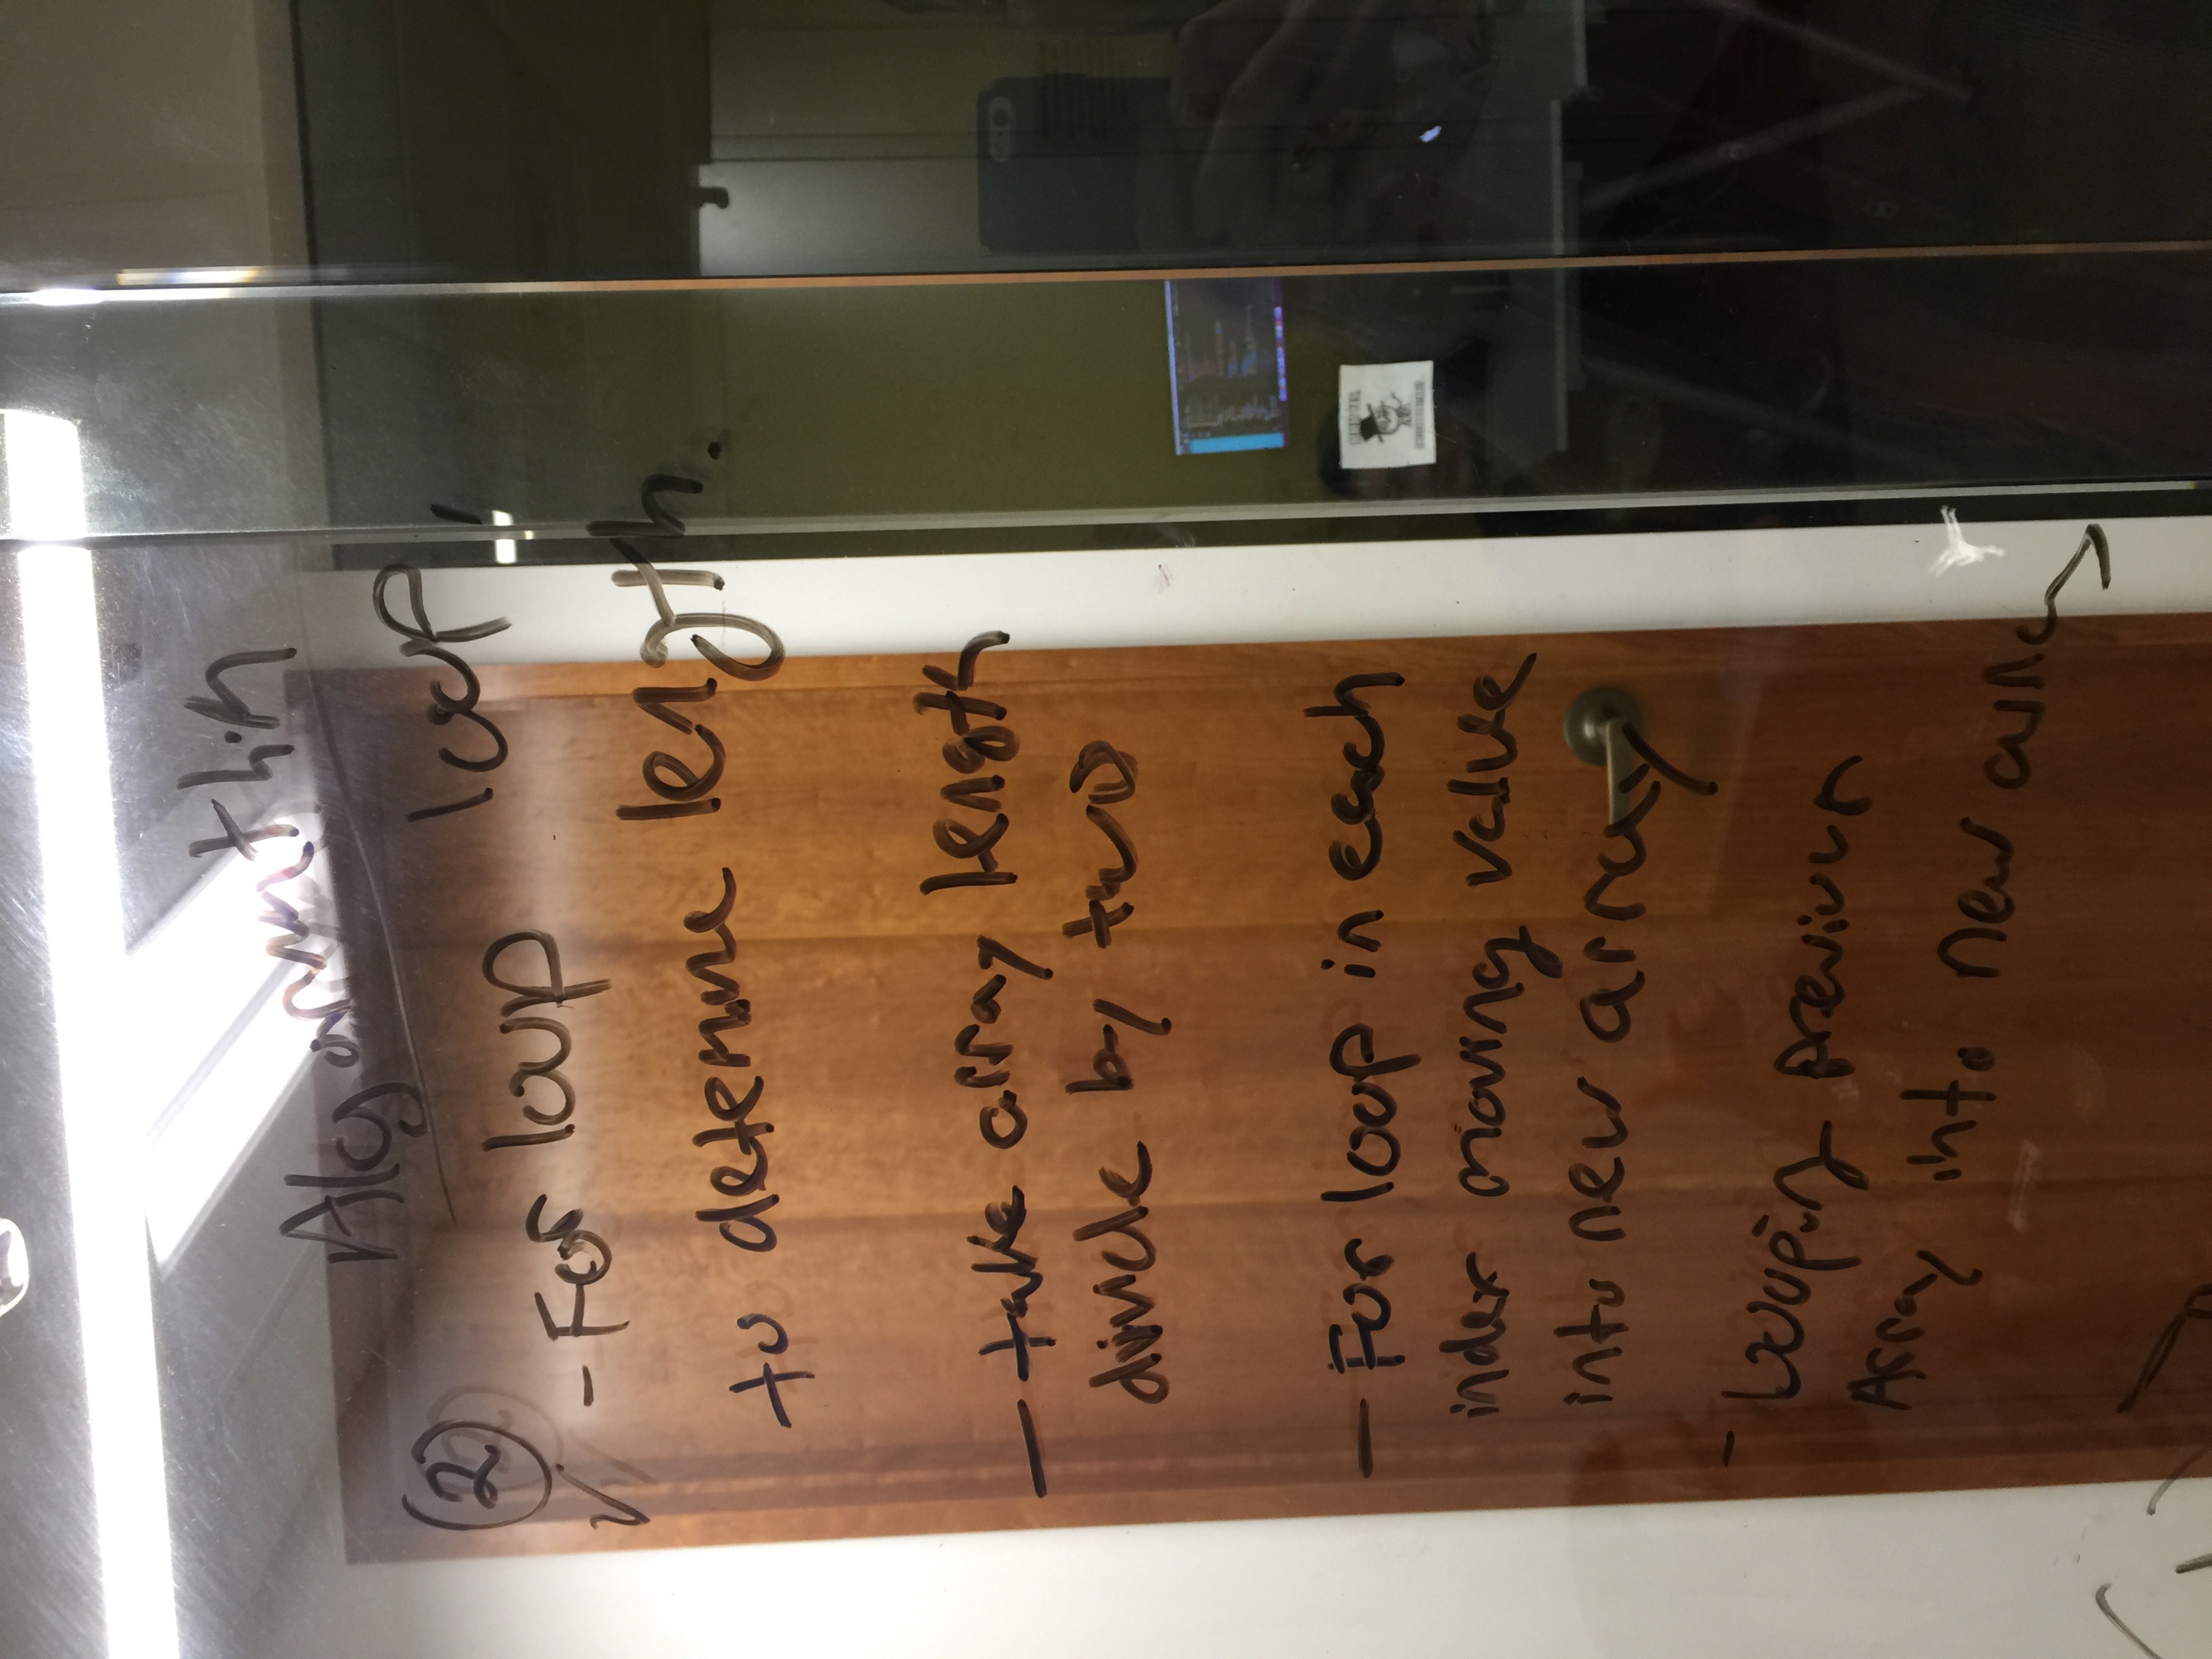 Algorithm
②
- For loup loop,
to determine length.
- take array length
divide by two
- For loop in each
index moving value
into new array
- Looping previous
Array into new array